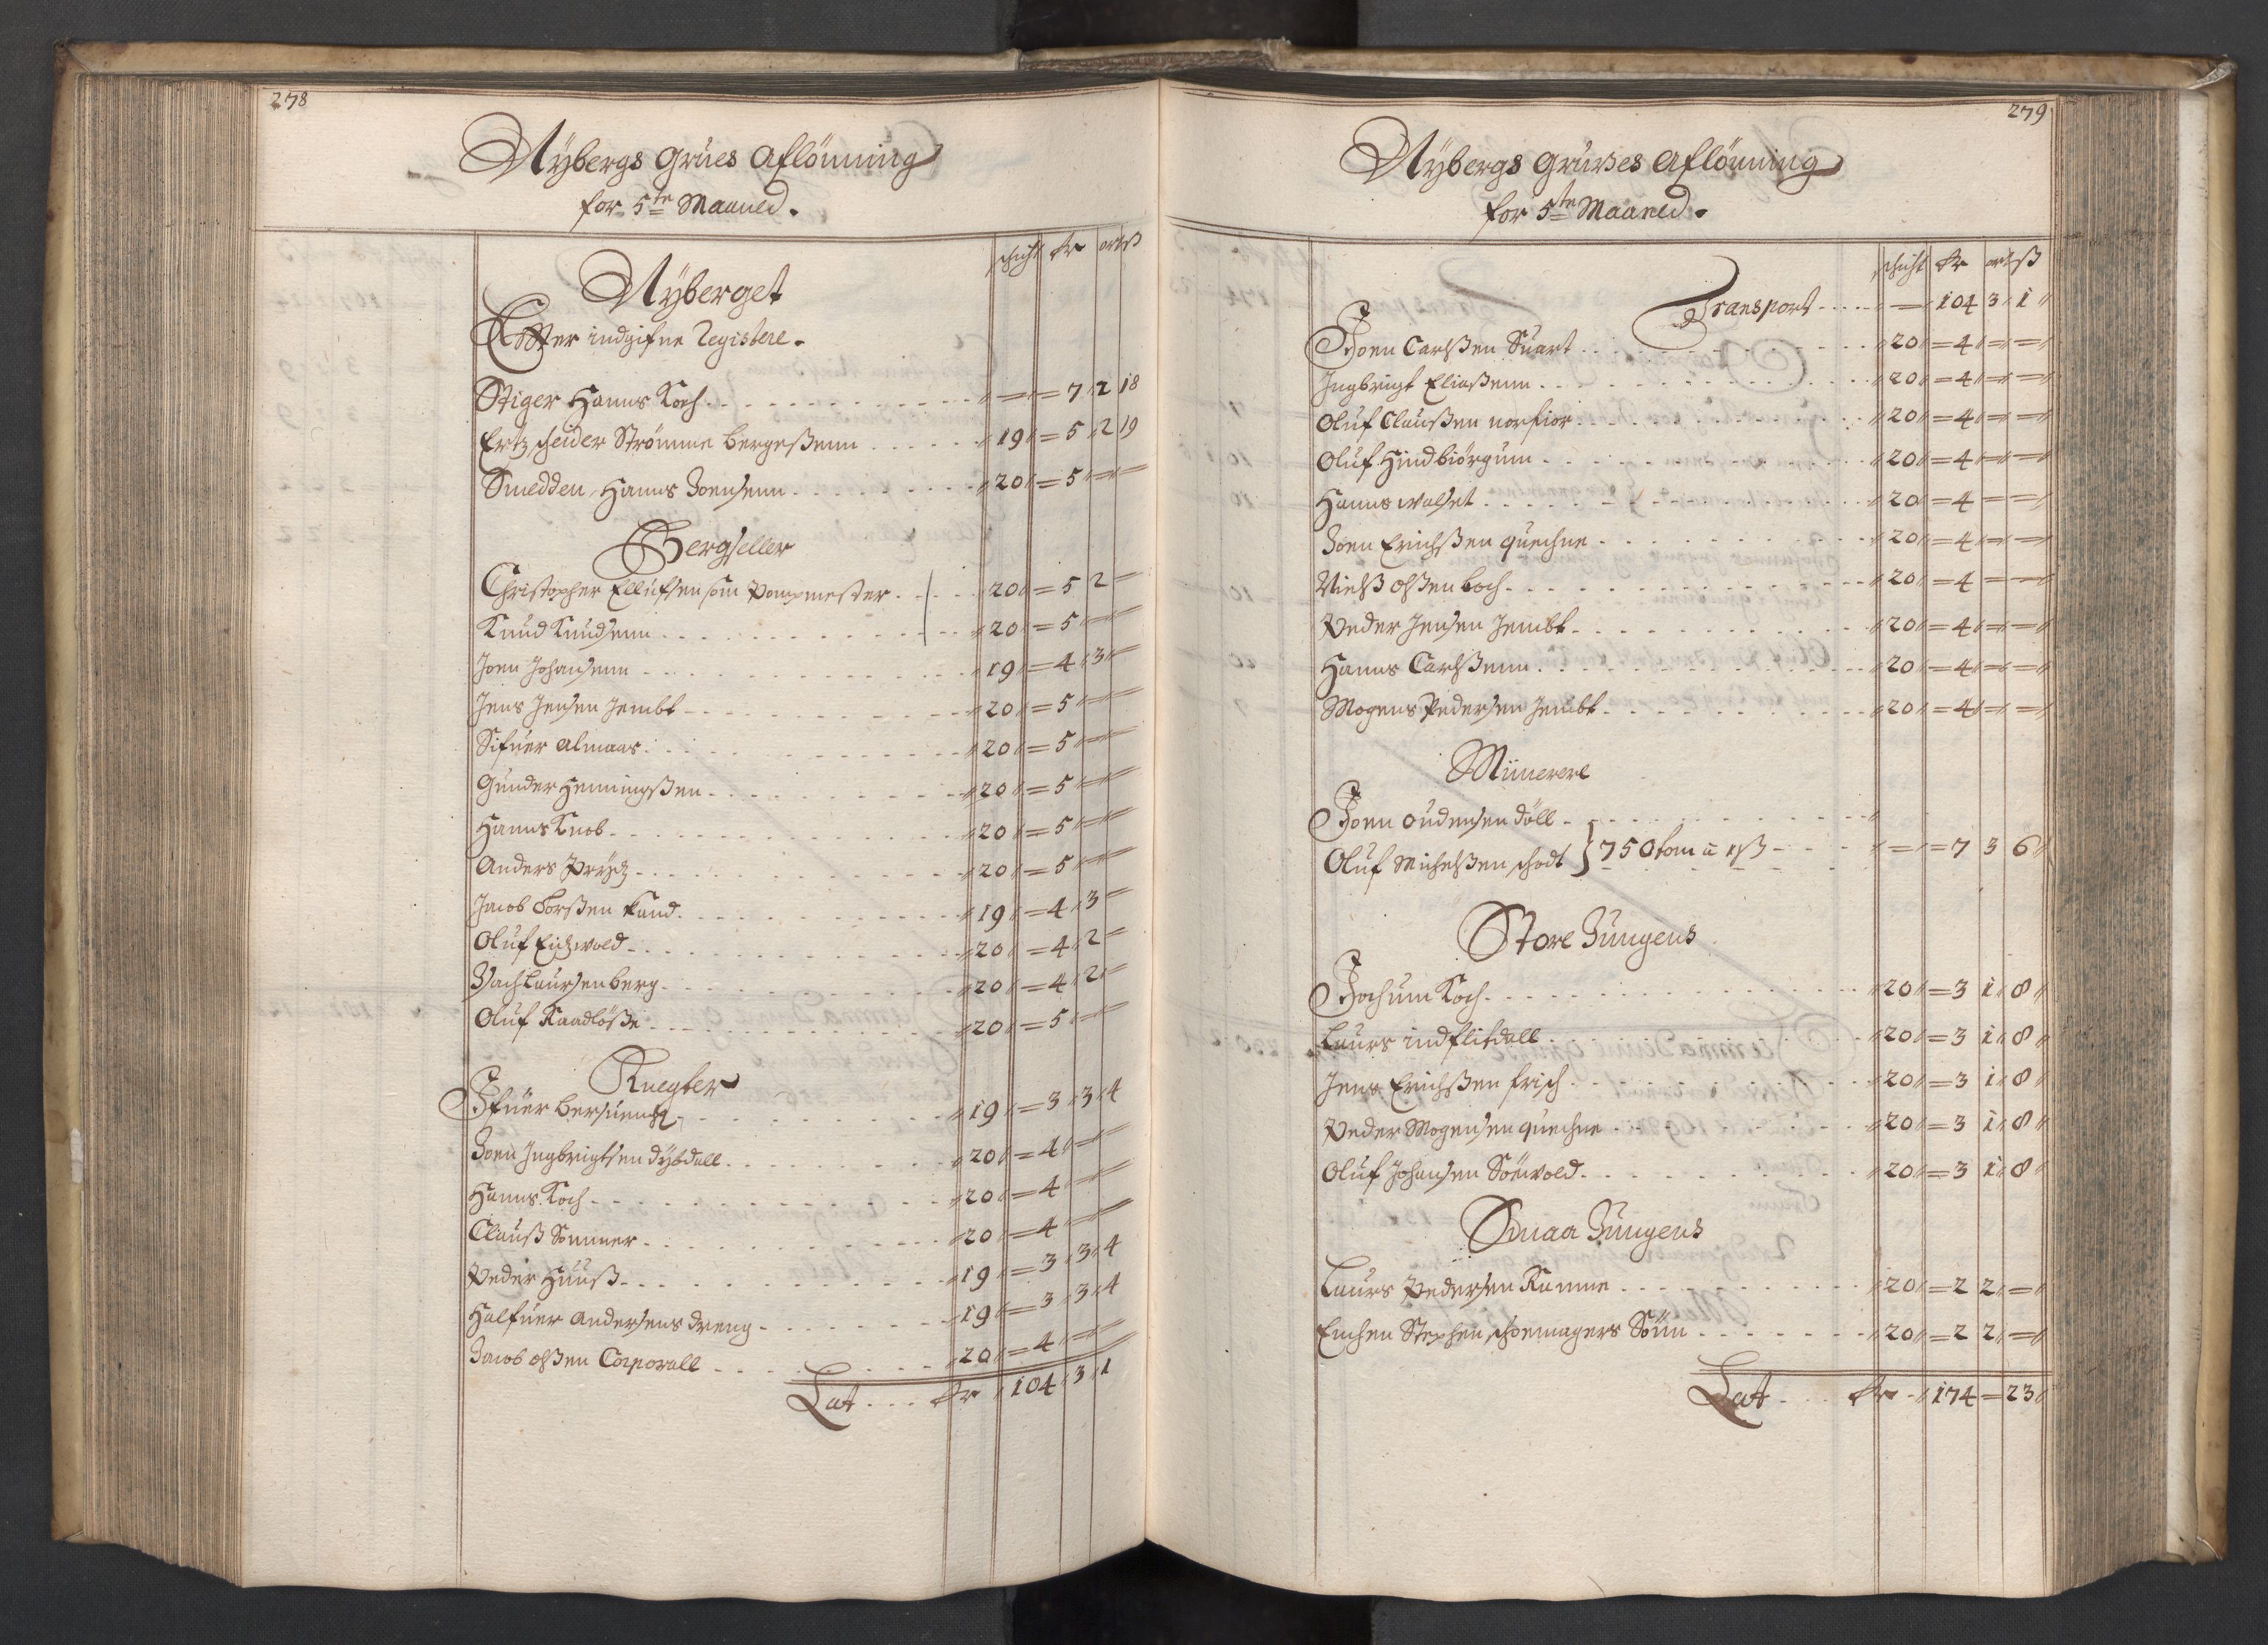 278
Nÿbergs Grues Aflönning
for 5te Maaned.
schicht Rdr ort ß
Nÿberget
Effter indgifne Registere.
Stiger Hanns Koch - - = 7 2 18
Ertzscheider Strömme Bergeßenn 19 = 5 2 19
Smedden, Hanns Joensenn 20 = 5 = =
Bergseller
Christopher Ellufsen som Pompmester 20 = 5 2 =
Knud Knudsenn 20 = 5 = =
Joen Johansenn 19 = 4 3 =
Jens Jensen Jembt 20 = 5 = =
Sifuer Almaas 20 = 5 = =
Gunder Henningßen 20 = 5 = =
Hanns Knob 20 = 5 = =
Anders Prÿtz 20 = 5 = =
Jacob Torßen Kand 19 = 4 3 =
Oluf Eidzwold 20 = 4 2 =
Isach Laursen berg 20 = 4 2 =
Oluf Raadlöße 20 = 5 = =
Knegter
Ifuer 19 = 3 3 4
Joen Ingbrigtsen Dÿbdall 20 = 4 = =
Hanns Koch 20 = 4 = =
Clauß Sommer 20 = 4 = =
Peder Huuß 19 = 3 3 4
Halfuer Andersens dreng 19 = 3 3 4
Jacob Olßen Corporall 20 = 4 = =
Lat Rdr 104 3 1
279
Nÿbergs Grufves Aflönning
for 5te Maaned.
schicht Rdr ort ß
Transport - 104 3 1
Joen Carlßen Suart 20 = 4 = =
Ingbrigt Eliaßenn 20 = 4 = =
Oluf Claußen norfior 20 = 4 = =
Oluf Hindbiörgum 20 = 4 = =
Hanns walset 20 = 4 = =
Joen Erichßen quechne 20 = 4 = =
Nielß Olßen boch 20 = 4 = =
Peder Jensen Jembt 20 = 4 = =
Hanns Carlßenn 20 = 4 = =
Mogens Pedersen Jembt 20 = 4 = =
Miinerere
Joen Oudensen döll
Oluf Michelßen schodt } 750 tom a 1ß - = 7 3 6
Store Jungens
Jochum Koch 20 = 3 1 8
Laurs indflitdall 20 = 3 1 8
Jens Erichßen frisch 20 = 3 1 8
Peder Mogensen quechne 20 = 3 1 8
Oluf Johansen Söewold 20 = 3 1 8
Smaa Jungens
Laurs Pedersen Ramme 20 = 2 2 =
Enchen Stephen schoemagers Sönn 20 = 2 2 =
Lat Rdr 174 = 23